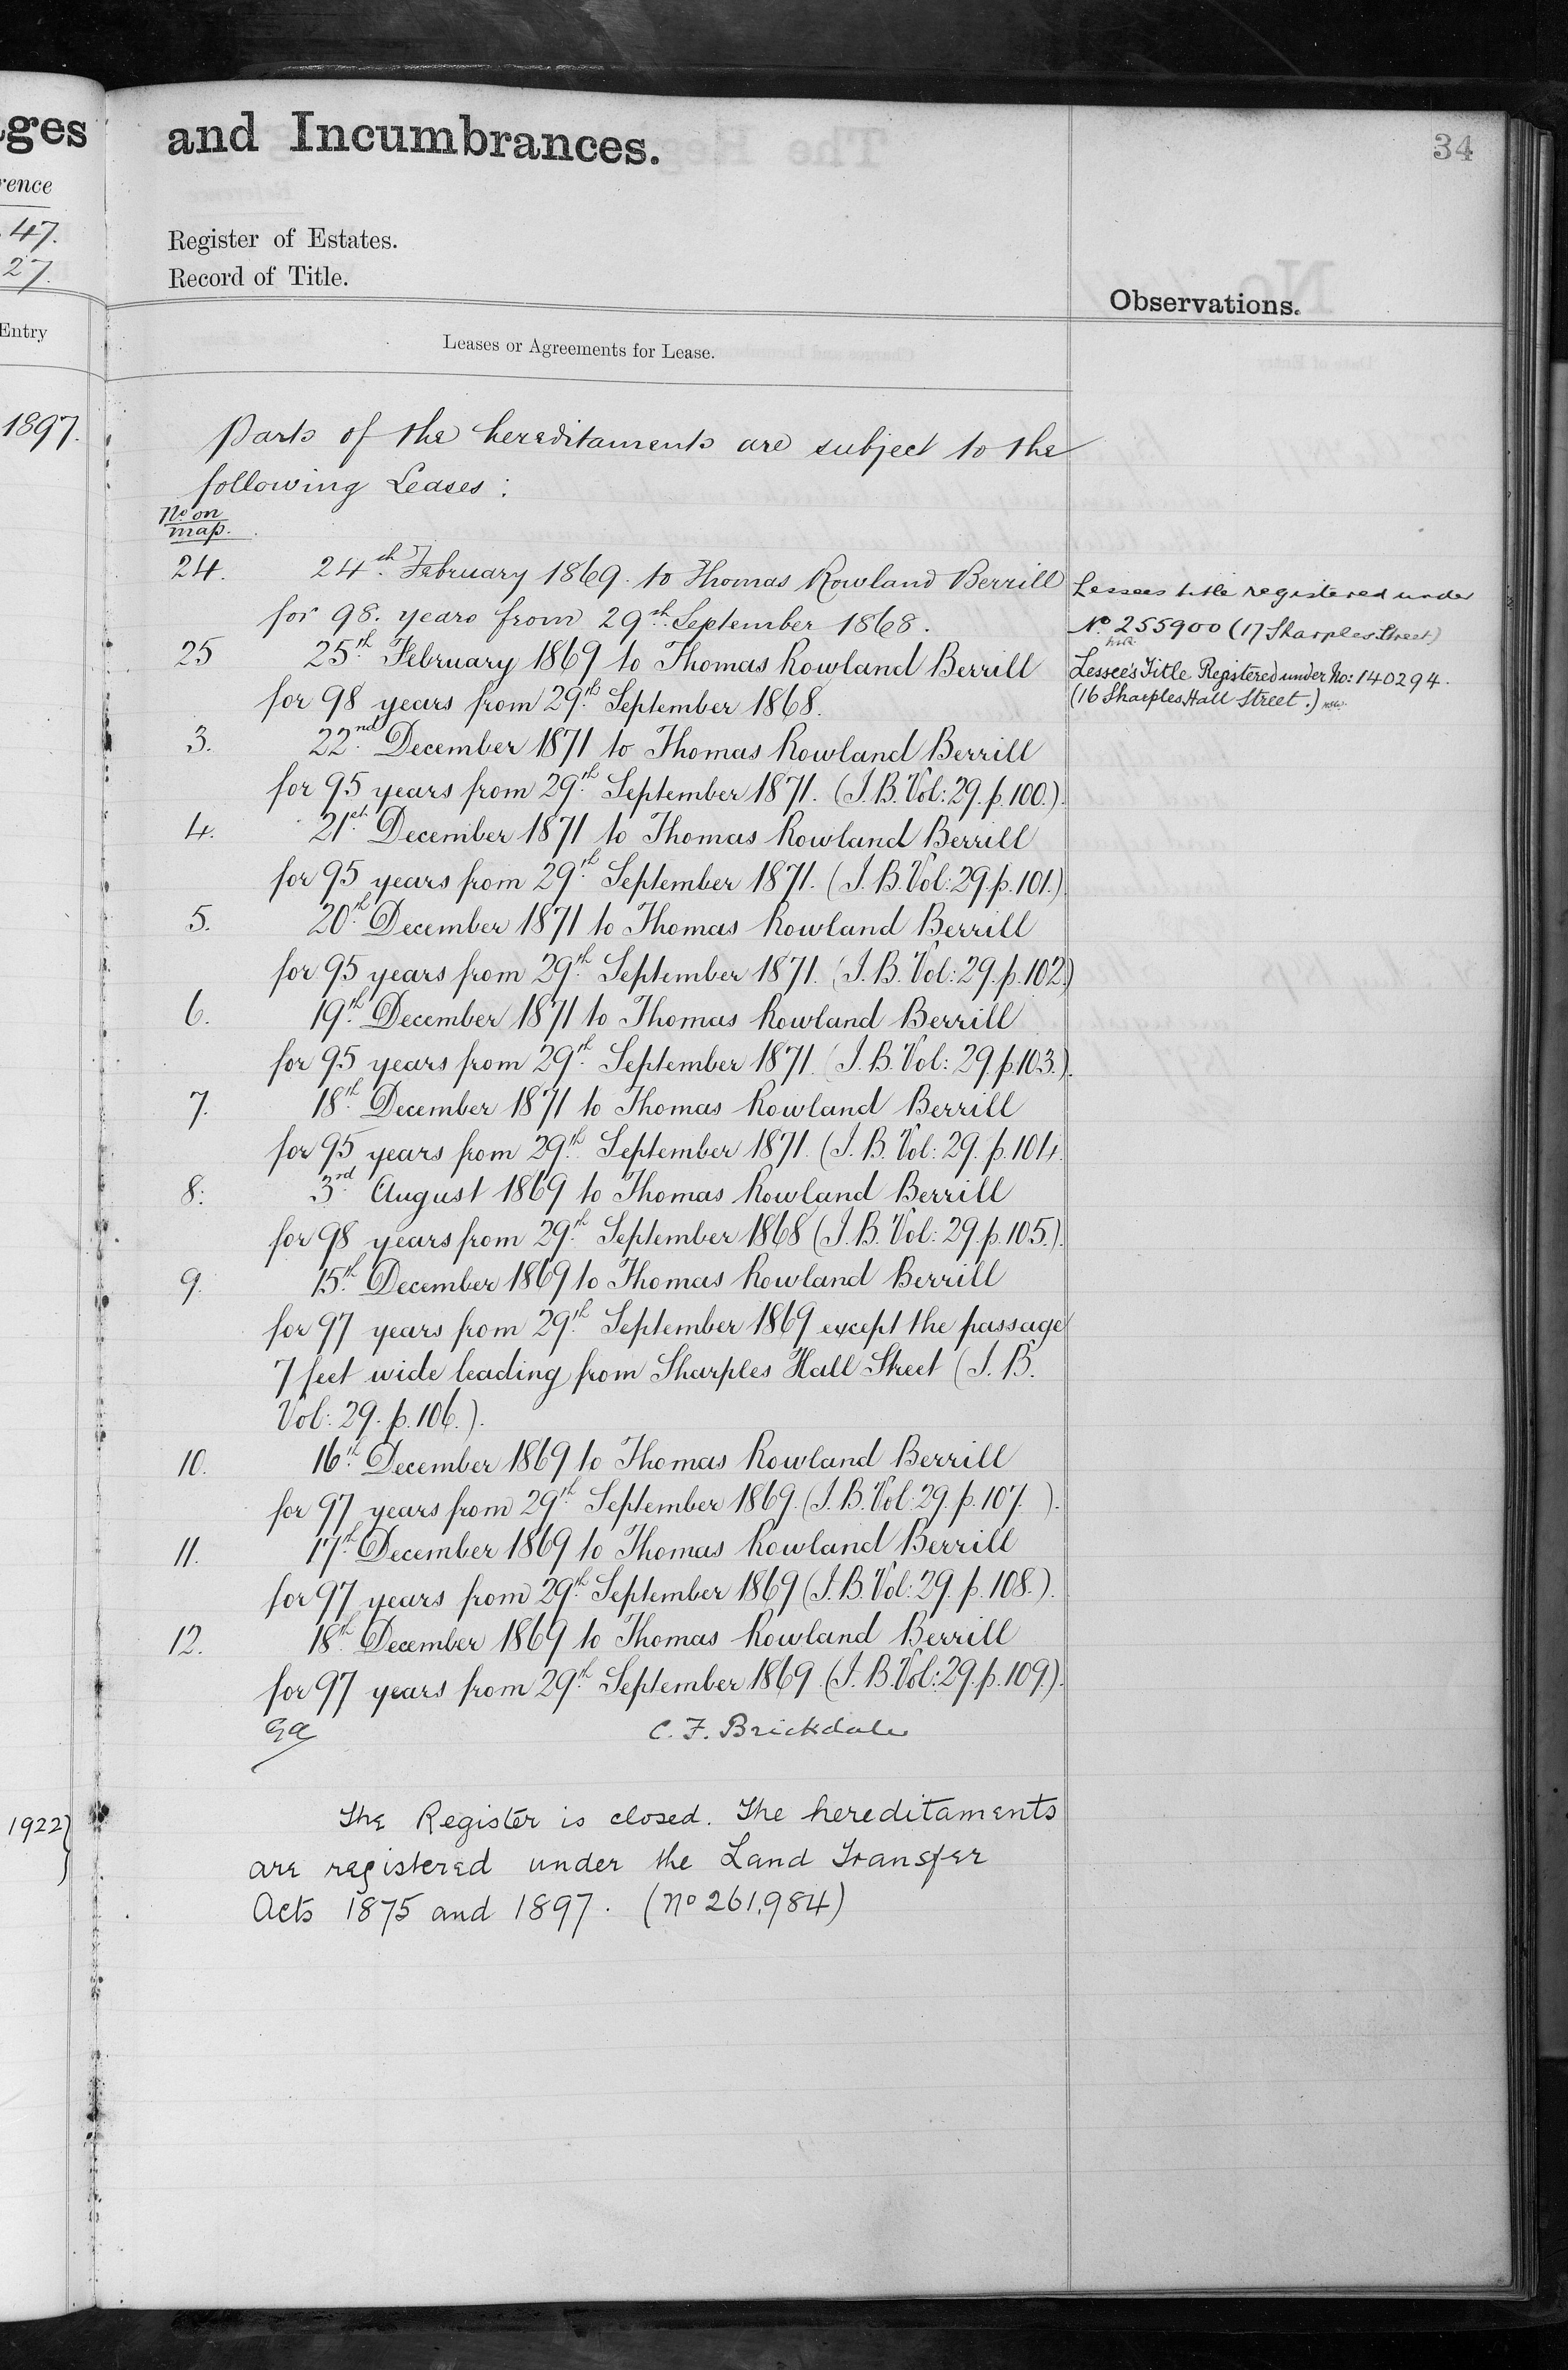 ges
rence
47.
27.
Entry
1897.
1922
and Incumbrances.
34
Register of Estates.
Record of Title.
Observations.
Leases or Agreements for Lease.
Parts of the hereditaments are subject to the
following Leases:
No. on
map.
24. 24th February 1869 to Thomas Rowland Berrill
for 98. years from 29th September 1868.
25 25th February 1869 to Thomas Rowland Berrill
for 98 years from 29th September 1868.
3. 22nd December 1871 to Thomas Rowland Berrill
for 95 years from 29th September 1871. (I.B. Vol: 29. p. 100.)
4. 21st December 1871 to Thomas Rowland Berrill
for 95 years from 29th September 1871. (I.B. Vol: 29. p. 101.)
5. 20th December 1871 to Thomas Rowland Berrill
for 95 years from 29th September 1871. (I.B. Vol: 29. p. 102.)
6. 19th December 1871 to Thomas Rowland Berrill
for 95 years from 29th September 1871. (I.B. Vol: 29. p. 103.).
7. 18th December 1871 to Thomas Rowland Berrill
for 95 years from 29th September 1871. (I.B. Vol: 29. p. 104.
8: 3rd August 1869 to Thomas Rowland Berrill
for 98 years from 29th September 1868 (I.B. Vol: 29. p. 105.).
9. 15th December 1869 to Thomas Rowland Berrill
for 97 years from 29th September 1869 except the passage
7 feet wide leading from Sharples Hall Street (I.B.
Vol: 29. p. 106.).
10. 16th December 1869 to Thomas Rowland Berrill
for 97 years from 29th September 1869. (I.B. Vol: 29. p. 107. ).
11. 17th December 1869 to Thomas Rowland Berrill
for 97 years from 29th September 1869 (I.B. Vol: 29. p. 108.).
12. 18th December 1869 to Thomas Rowland Berrill
for 97 years from 29th September 1869. (I.B. Vol: 29. p. 109.).
C. F. Brickdale
The Register is closed. The hereditaments
are registered under the Land Transfer
Acts 1875 and 1897. (No 261,984)
Lessees title registered under
No. 255900 (17 Sharples Street)
Lessee's Title Registered under No: 140294.
(16 Sharples Hall Street.)